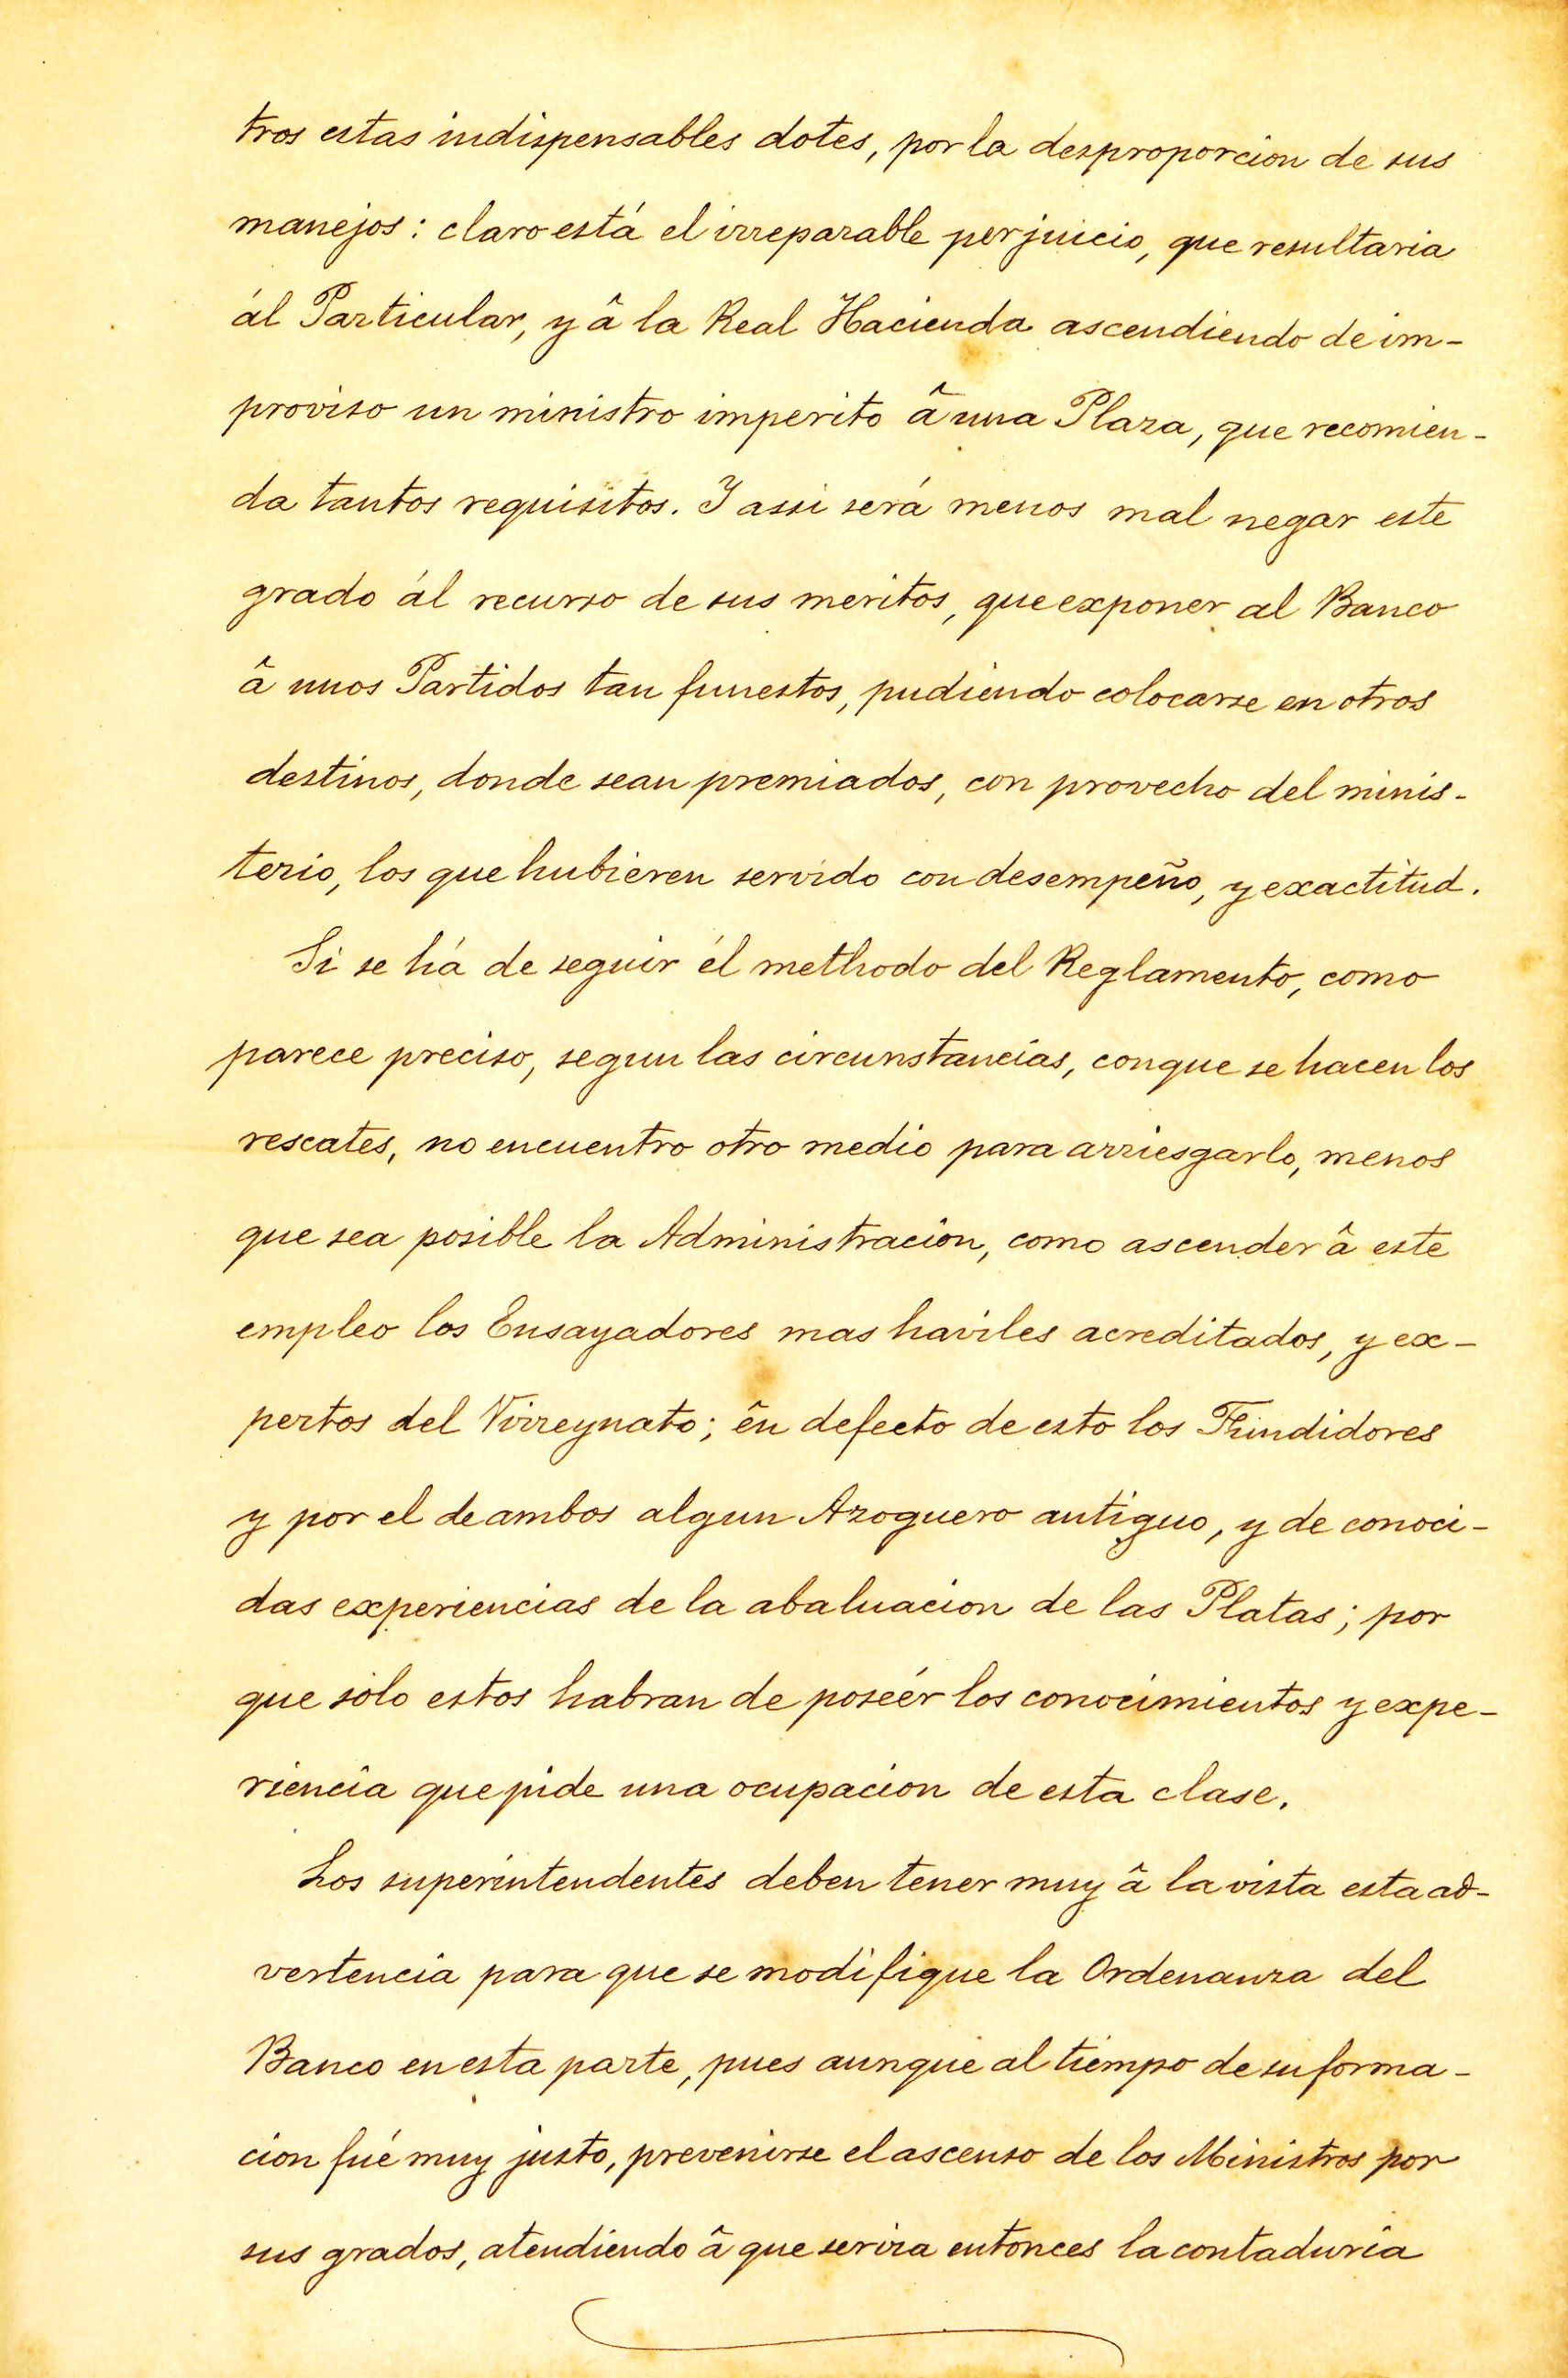 tros estas indispensables dotes, por la desproporcion de sus
manejos: claro está el irreparable perjuicio, que resultaria
ál Particular, y â la Real Hacienda ascendiendo de im-
proviso un ministro imperito â una Plaza, que recomien-
da tantos requisitos. Y assi será menos mal negar este
grado ál recurso de sus meritos, que exponer al Banco
â unos Partidos tan funestos, pudiendo colocarse en otros
destinos, donde sean premiados, con provecho del minis-
terio, los que hubieren servido con desempeño, y exactitud.
Si se há de seguir él methodo del Reglamento, como
parece preciso, segun las circunstancias, conque se hacen los
rescates, no encuentro otro medio para arriesgarlo, menos
que sea posible la Administracion, como ascender â este
empleo los Ensayadores mas haviles acreditados, y ex-
pertos del Virreynato; ên defecto de esto los Fundidores
y por el de ambos algun Azoguero antiguo, y de conoci-
das experiencias de la abaluacion de las Platas; por
que sólo estos habran de poseér los conocimientos y expe-
riencia que pide una ocupacion de esta clase.
Los superintendentes deben tener muy â la vista esta ad-
vertencia para que se modifique la Ordenanza del
Banco en esta parte, pues aunque al tiempo de su forma-
cion fué muy justo, prevenirse el ascenso de los Ministros por
sus grados, atendiendo â que serira entonces la contaduria